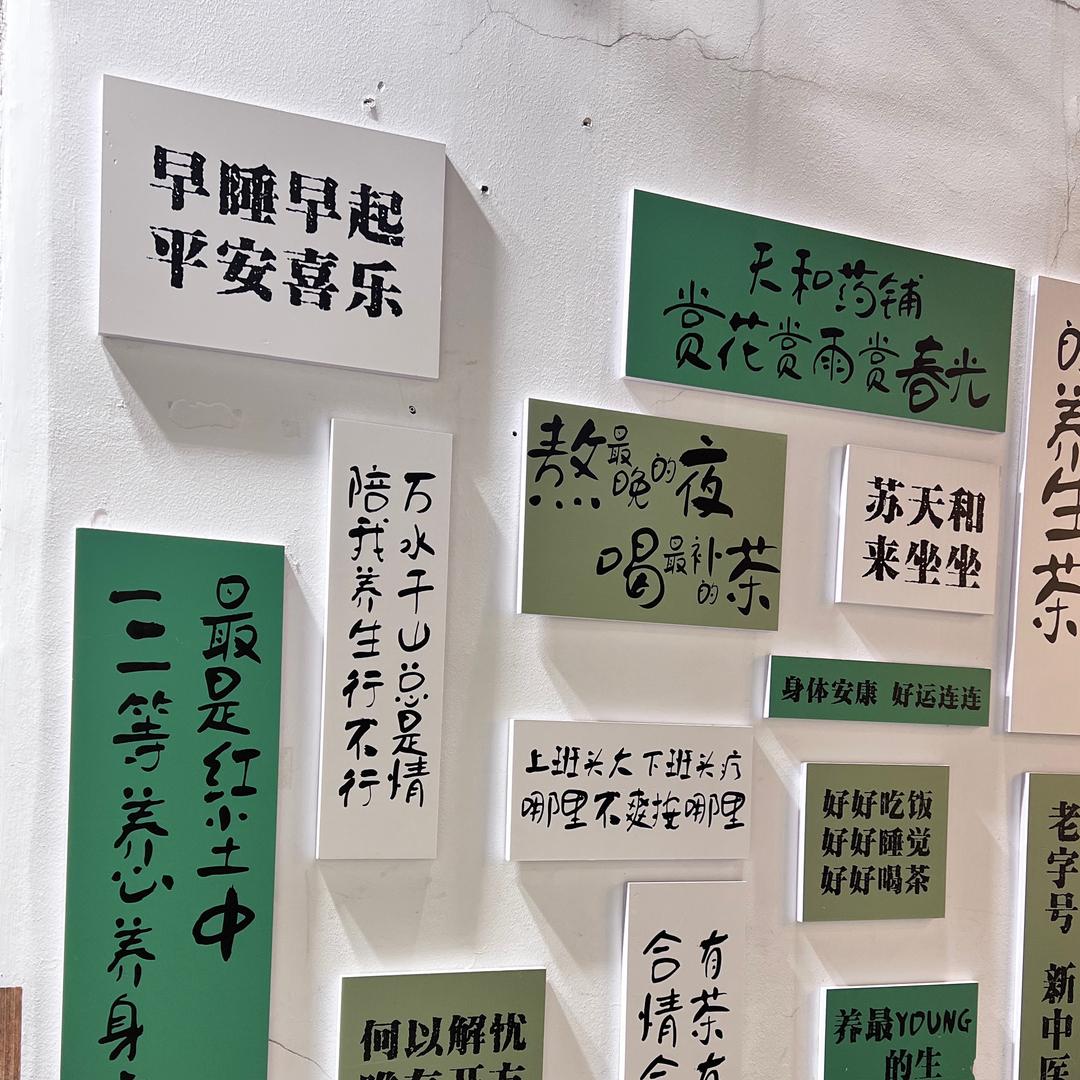 早睡早起
平安喜乐
天和药铺
赏花赏雨赏春光
熬最晚的夜
喝最补的茶
苏天和
来坐坐
万水千山总是情
陪我养生行不行
最是红尘土中
一二一等养心养身
身体安康 好运连连
上班头大 下班头疗
哪里不爽按哪里
好好吃饭
好好睡觉
好好喝茶
养生茶
有茶有
合情合
何以解忧
养最YOUNG
的生
老字号
新中医